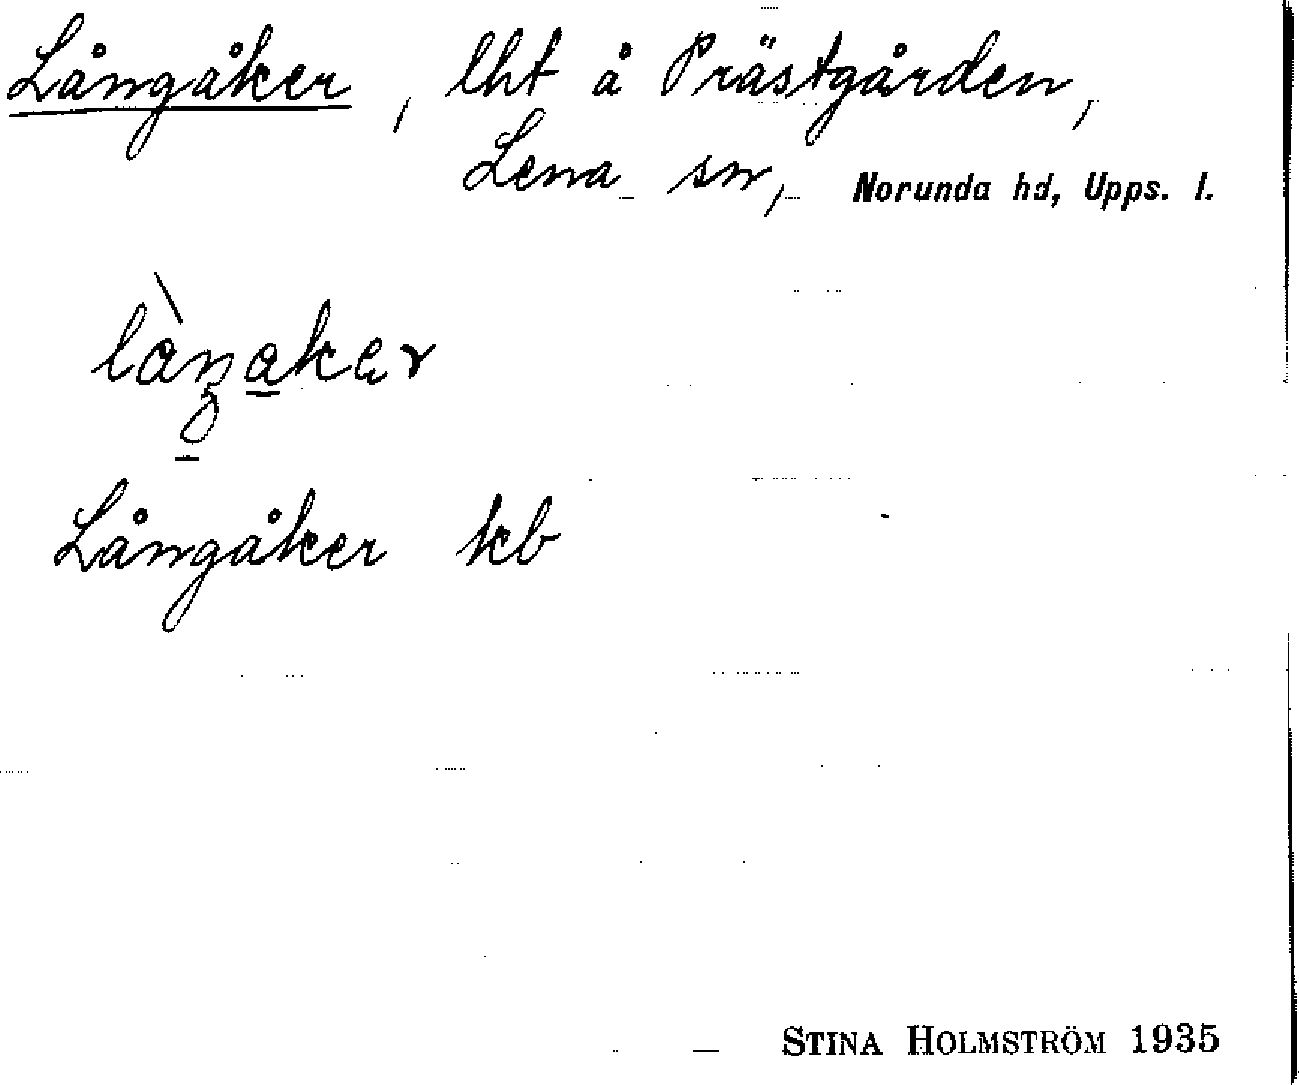 Långåker, lht å Prästgården,
Lena sn, Norunda hd, Upps. l.
Långåker kb
STINA HOLMSTRÖM 1935